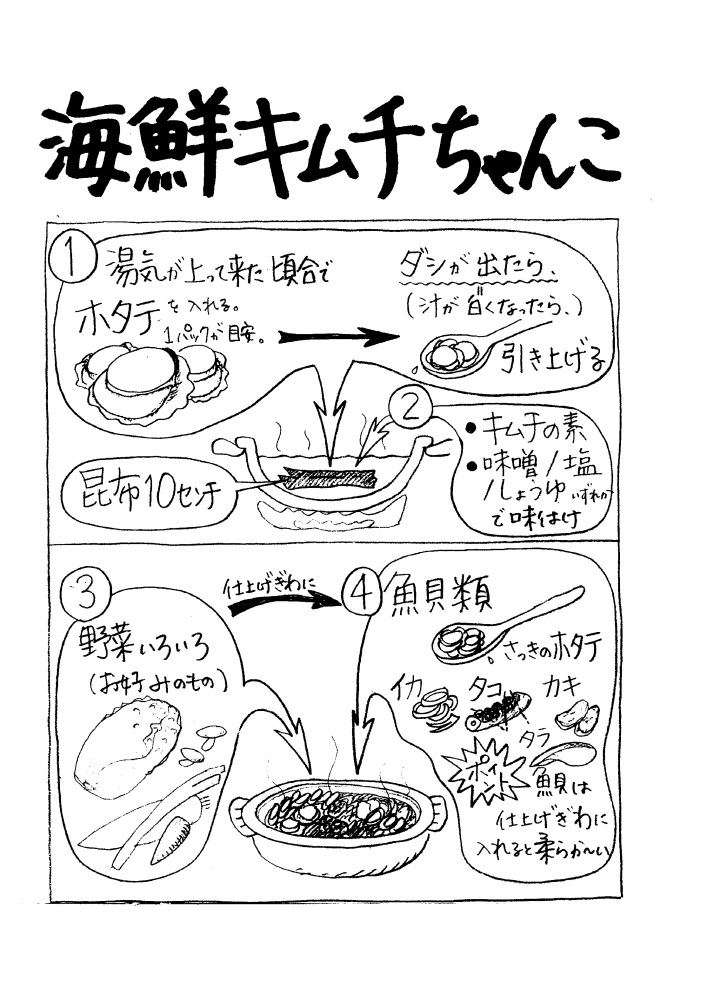 海鮮キムチちゃんこ
①
湯気が上って来た頃合で
ホタテを入れる。
1パックが目安。
ダシが出たら、
(汁が白くなったら、)
引き上げる
②
●キムチの素
●味噌/塩
/しょうゆいずれか
で味付け
昆布10センチ
③
野菜いろいろ
(お好みのもの)
仕上げぎわに
④
魚貝類
さっきのホタテ
イカ
タコ
カキ
タラ
ポイント
魚貝は
仕上げぎわに
入れると柔らか~い